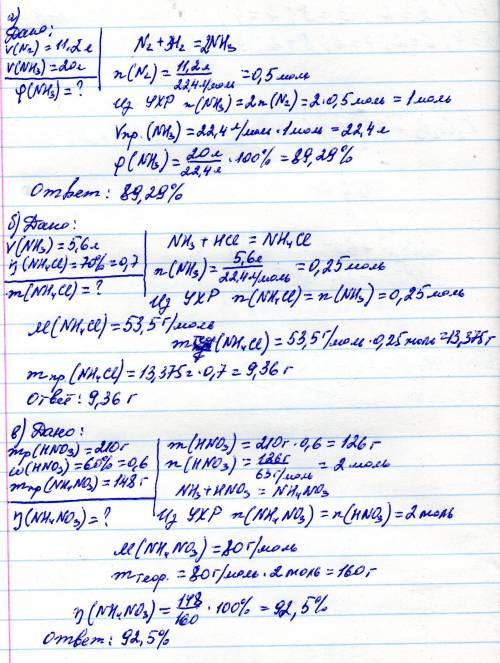 а)
Дано:
V(N₂) = 11.2 л
V(NH₃) = 20 л
φ(NH₃) = ?
N₂ + 3H₂ = 2NH₃
n(N₂) = 11,2 л / 22,4 л/моль = 0,5 моль
Из УХР n(NH₃) = 2n(N₂) = 2·0,5 моль = 1 моль
Vпр.(NH₃) = 22,4 л/моль · 1 моль = 22,4 л
φ(NH₃) = 20 л / 22,4 л · 100% = 89,29%
Ответ: 89,29%
б) Дано:
V(NH₃) = 5,6 л
η(NH₄Cl) = 70% = 0,7
m(NH₄Cl) = ?
NH₃ + HCl = NH₄Cl
n(NH₃) = 5,6 л / 22,4 л/моль = 0,25 моль
Из УХР n(NH₄Cl) = n(NH₃) = 0,25 моль
M(NH₄Cl) = 53,5 г/моль
m (NH₄Cl) = 53,5 г/моль · 0,25 моль = 13,375 г
mпр(NH₄Cl) = 13,375 г · 0,7 = 9,36 г
Ответ: 9,36 г
в) Дано:
mр(HNO₃) = 210 г
ω(HNO₃) = 60% = 0,6
mпр(NH₄NO₃) = 148 г
η(NH₄NO₃) = ?
m(HNO₃) = 210 г · 0,6 = 126 г
n(HNO₃) = 126 г / 63 г/моль = 2 моль
NH₃ + HNO₃ = NH₄NO₃
Из УХР n(NH₄NO₃) = n(HNO₃) = 2 моль
M(NH₄NO₃) = 80 г/моль
mтеор. = 80 г/моль · 2 моль = 160 г
η(NH₄NO₃) = 148 / 160 · 100% = 92,5%
Ответ: 92,5%